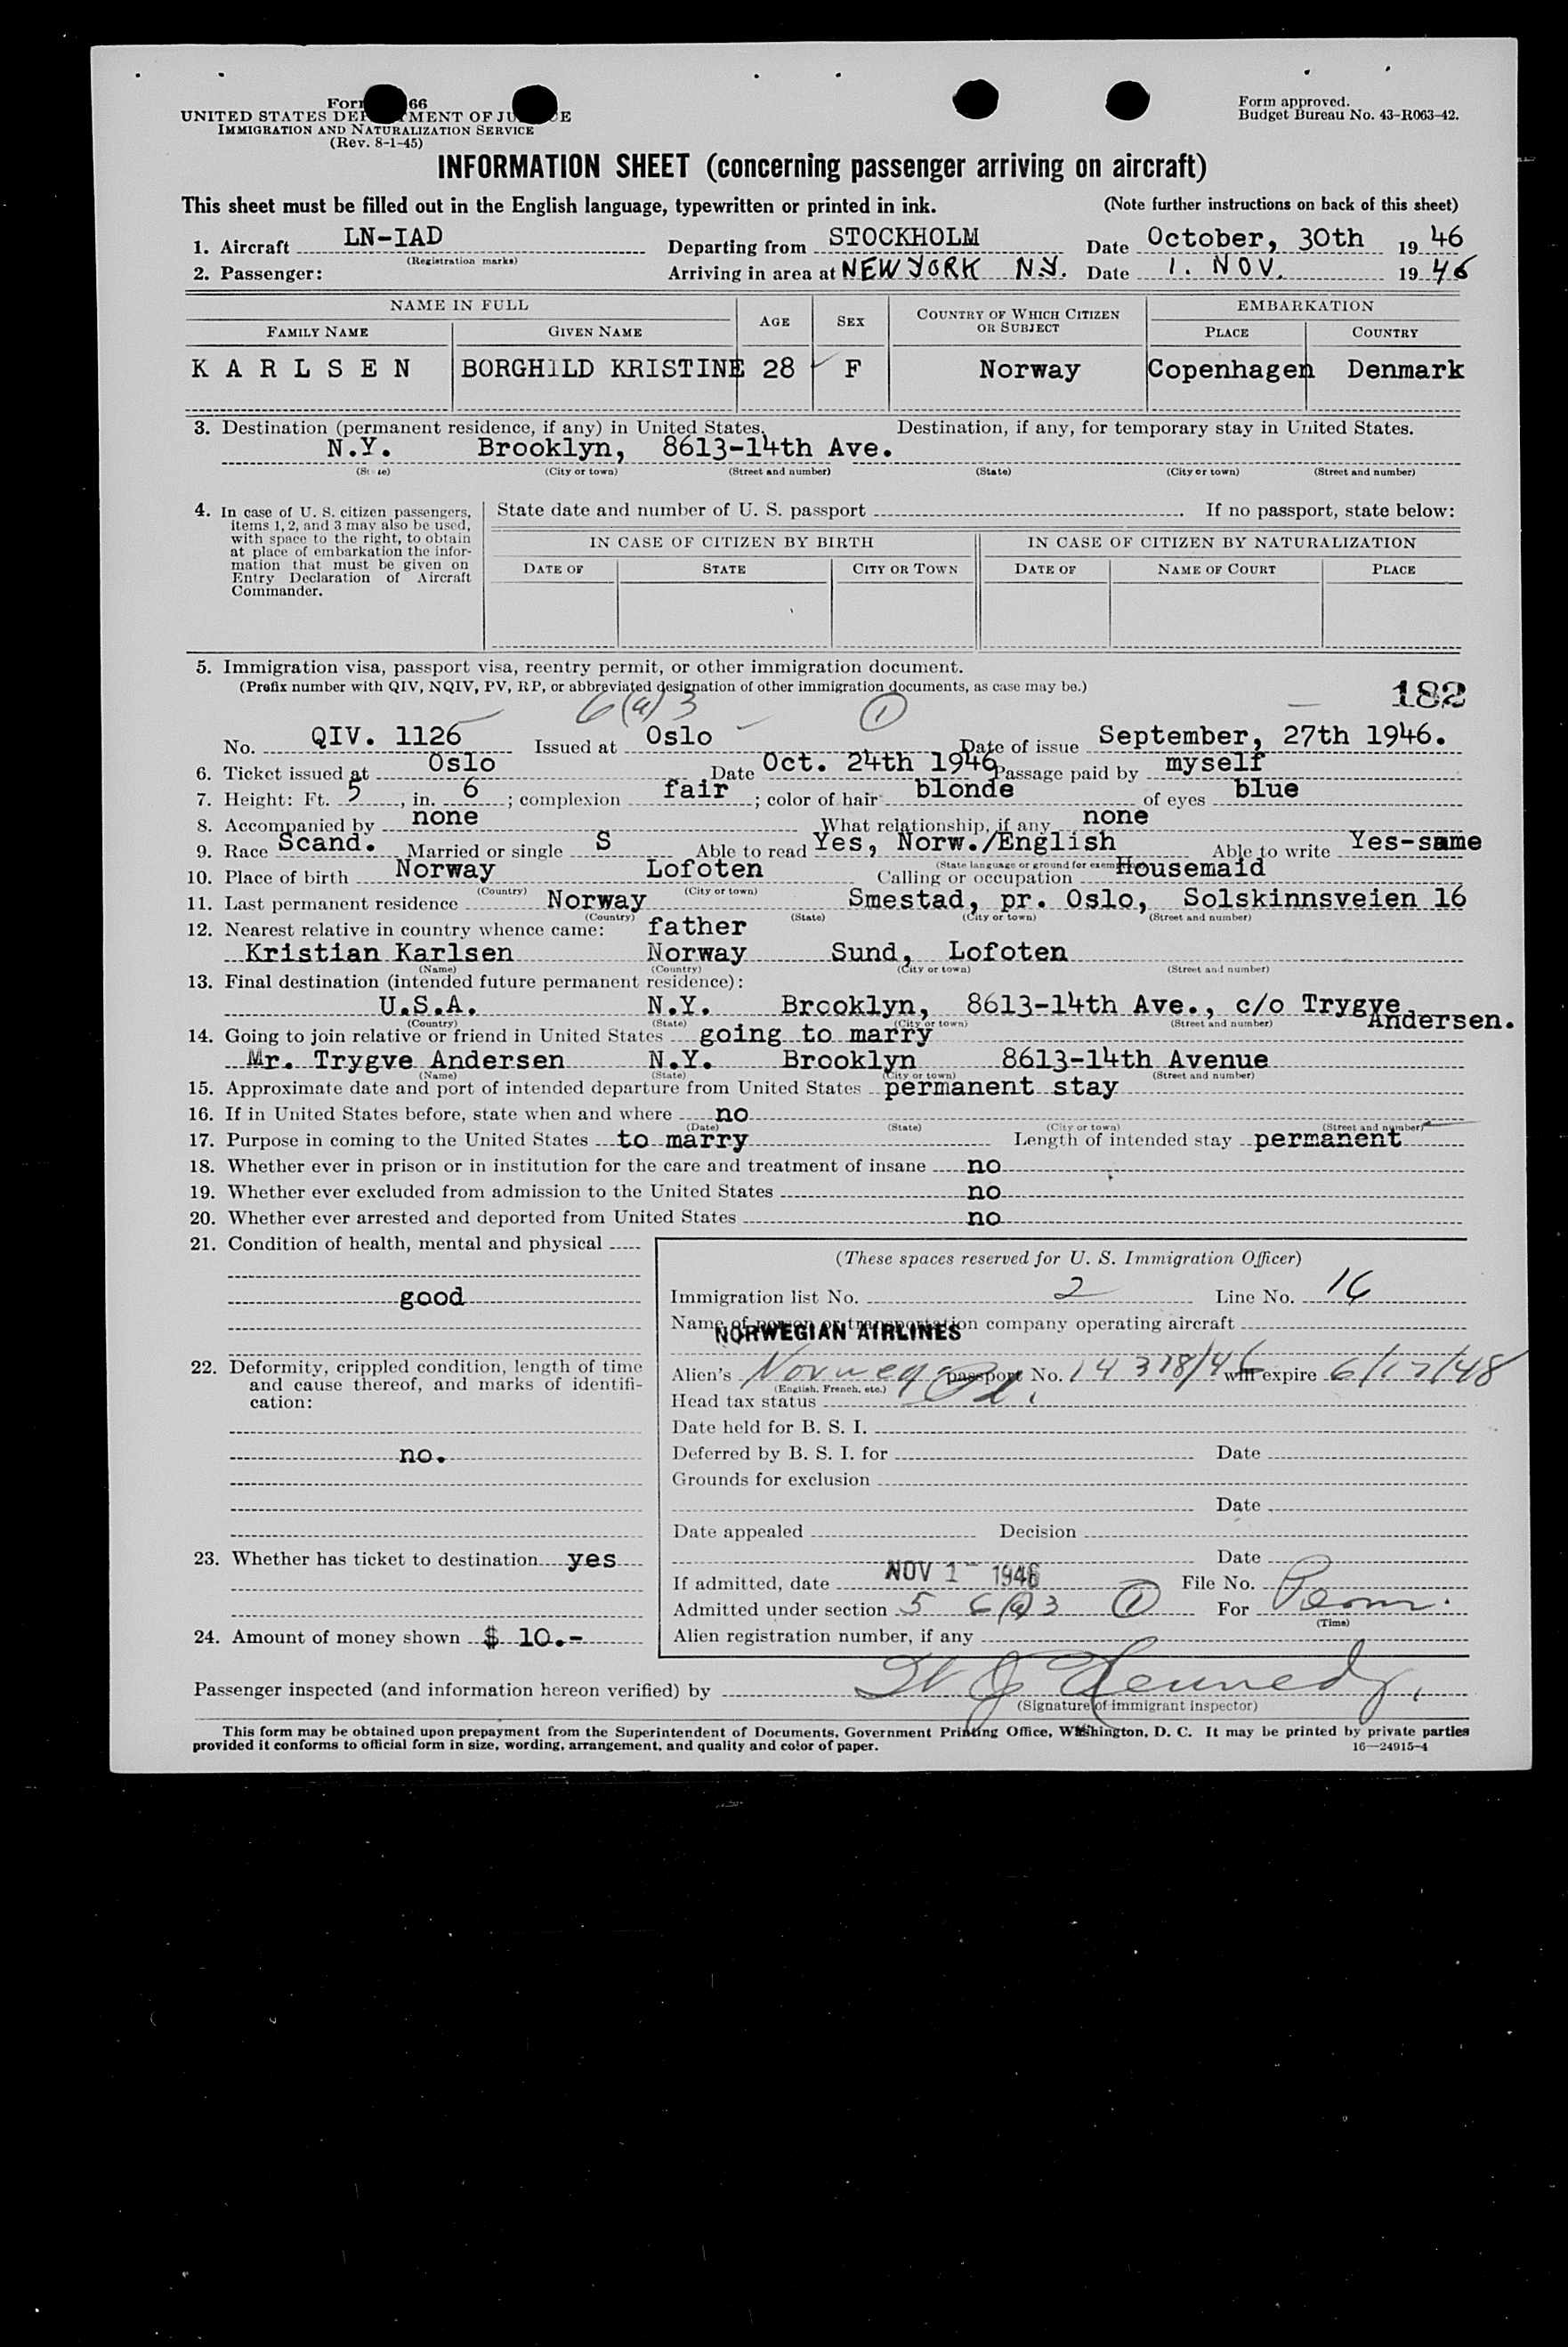 Form 66
UNITED STATES DEPARTMENT OF JUSTICE
IMMIGRATION AND NATURALIZATION SERVICE
(Rev. 8-1-45)
Form approved.
Budget Bureau No. 43-R063-42.
INFORMATION SHEET (concerning passenger arriving on aircraft)
This sheet must be filled out in the English language, typewritten or printed in ink. (Note further instructions on back of this sheet)
1. Aircraft LN-IAD Departing from STOCKHOLM Date October, 30th 19 46
(Registration marks)
2. Passenger: Arriving in area at NEW YORK N.Y. Date 1. NOV. 19 46
NAME IN FULL AGE SEX COUNTRY OF WHICH CITIZEN OR SUBJECT EMBARKATION
FAMILY NAME GIVEN NAME PLACE COUNTRY
KARLSEN BORGHILD KRISTINE 28 F Norway Copenhagen Denmark
3. Destination (permanent residence, if any) in United States. Destination, if any, for temporary stay in United States.
N.Y. Brooklyn, 8613-14th Ave.
(State) (City or town) (Street and number) (State) (City or town) (Street and number)
4. In case of U. S. citizen passengers, items 1, 2, and 3 may also be used, with space to the right, to obtain at place of embarkation the information that must be given on Entry Declaration of Aircraft Commander.
State date and number of U. S. passport . If no passport, state below:
IN CASE OF CITIZEN BY BIRTH IN CASE OF CITIZEN BY NATURALIZATION
DATE OF STATE CITY OR TOWN DATE OF NAME OF COURT PLACE
5. Immigration visa, passport visa, reentry permit, or other immigration document.
(Prefix number with QIV, NQIV, PV, RP, or abbreviated designation of other immigration documents, as case may be.)
182
6(a)3 1
No. QIV. 1126 Issued at Oslo Date of issue September, 27th 1946.
6. Ticket issued at Oslo Date Oct. 24th 1946 Passage paid by myself
7. Height: Ft. 5, in. 6; complexion fair; color of hair blonde of eyes blue
8. Accompanied by none What relationship, if any none
9. Race Scand. Married or single S Able to read Yes, Norw./English Able to write Yes-same
(State language or ground for exemption)
10. Place of birth Norway Lofoten Calling or occupation Housemaid
(Country) (City or town)
11. Last permanent residence Norway Smestad, pr. Oslo, Solskinnsveien 16
(Country) (State) (City or town) (Street and number)
12. Nearest relative in country whence came: father
Kristian Karlsen Norway Sund, Lofoten
(Name) (Country) (City or town) (Street and number)
13. Final destination (intended future permanent residence):
U.S.A. N.Y. Brooklyn, 8613-14th Ave., c/o Trygve Andersen.
(Country) (State) (City or town) (Street and number)
14. Going to join relative or friend in United States going to marry
Mr. Trygve Andersen N.Y. Brooklyn 8613-14th Avenue
(Name) (State) (City or town) (Street and number)
15. Approximate date and port of intended departure from United States permanent stay
16. If in United States before, state when and where no
(Date) (State) (City or town) (Street and number)
17. Purpose in coming to the United States to marry Length of intended stay permanent
18. Whether ever in prison or in institution for the care and treatment of insane no
19. Whether ever excluded from admission to the United States no
20. Whether ever arrested and deported from United States no
21. Condition of health, mental and physical
good
22. Deformity, crippled condition, length of time and cause thereof, and marks of identification:
no.
23. Whether has ticket to destination yes
24. Amount of money shown $ 10.-
(These spaces reserved for U. S. Immigration Officer)
Immigration list No. 2 Line No. 16
Name of person or transportation company operating aircraft
NORWEGIAN AIRLINES
Alien's Norweg passport No. 14318/46 will expire 6/17/48
(English, French, etc.)
Head tax status Pd.
Date held for B. S. I.
Deferred by B. S. I. for Date
Grounds for exclusion
Date
Date appealed Decision
Date
If admitted, date NOV 1 - 1946 File No.
Admitted under section 5 6(a)3 1 For Perm.
(Time)
Alien registration number, if any
Passenger inspected (and information hereon verified) by W J Kennedy
(Signature of immigrant inspector)
This form may be obtained upon prepayment from the Superintendent of Documents, Government Printing Office, Washington, D. C. It may be printed by private parties
provided it conforms to official form in size, wording, arrangement, and quality and color of paper. 16—24915-4